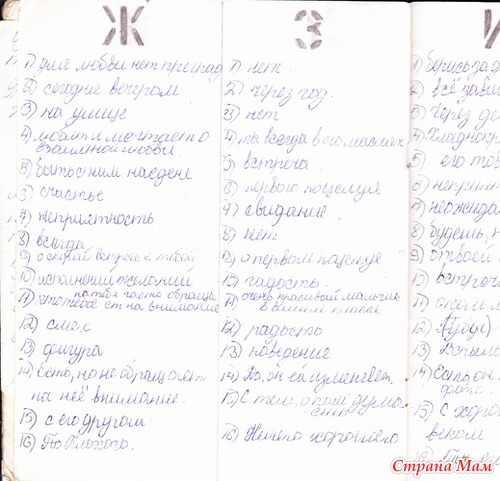 Ж
1) для любви нет преград
2) сегодня вечером
3) на улице
4) любит и мечтает о
взаимной любви
5) быть с ним наедене
6) счастье
7) неприятность
8) всегда
9) о встрече с тобой
10) исполнений желаний
11) на тебя часто обраща
ет он внимание
12) смех
13) фигура
14) есть, но не обращает
на неё внимание.
15) с его другом.
16) По Плохого.
З
1) нет.
2) через год.
3) нет
4) ты всегда в его мыслях
5) встреча
6) первого поцелуя
7) свидание.
8) нет
9) о первом поцелуе
10) гадость.
11) очень красивый мальчик
в белом плаще
12) радость
13) поведение
14) Да, он ей изменяет.
15) С тем, о ком дума-
ешь
16) Ничего хорошего
И
1) берись за
2) всё зави
3) Через де
4) Хладнокр
5) его тов
6) неприят
7) неожида
8) будешь, н
9) о твоей
10) встреч
11) о ком
12)
13) Вспом
14) Есть, он
фото.
15) С хоро
веком
16)
Страна Мам